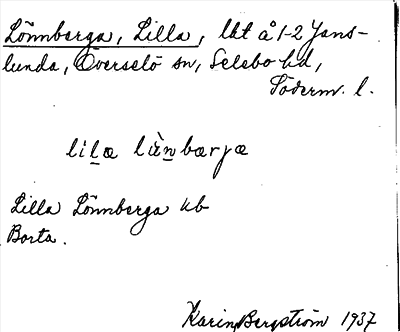 Lönnberga, Lilla, lht å 1-2 Jans-
lunda, Överselö sn, Selebo hd,
Söderm. l.
lilæ lönbærjæ
Lilla Lönnberga ub
Borta.
Karin Bergström 1937